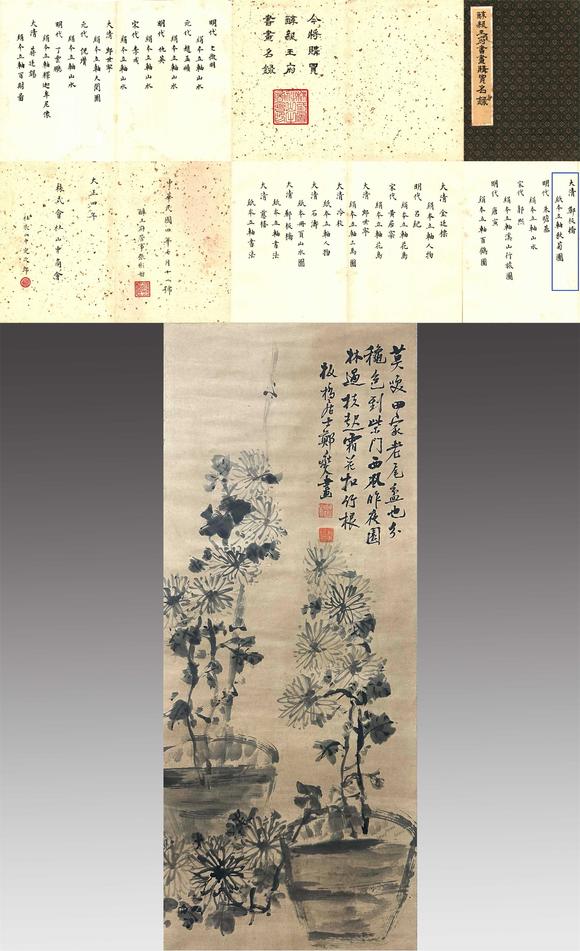 醇親王府書畫購買名錄
今將購買
醇親王府
書畫名錄
明代 文徵明
絹本立軸山水
元代 趙孟頫
絹本立軸山水
明代 仇英
絹本立軸山水
宋代 李成
絹本立軸山水
大清 郎世寧
絹本立軸大閱圖
元代 倪瓚
絹本立軸山水
明代 丁雲鵬
絹本立軸釋迦牟尼像
大清 蔣廷錫
絹本立軸百財圖
大清 鄭板橋
紙本立軸秋菊圖
明代 朱瞻基
絹本立軸山水
宋代 郭熙
絹本立軸溪山行旅圖
明代 唐寅
絹本立軸百鶴圖
大清 金廷標
絹本立軸人物
明代 呂紀
絹本立軸花鳥
宋代 黃居寀
絹本立軸花鳥
大清 郎世寧
絹本立軸二馬圖
大清 冷枚
紙本立軸人物
大清 石濤
紙本冊頁山水圖
大清 鄭板橋
紙本立軸書法
大清
紙本立軸書法
中華民國四年七月十八號
醇王府管事張彬
大正四年
株式會社山中商會
社長山中定次郎
莫笑田家老瓦盆也分
穐色到柴門西風昨夜園
林過扶起霜花扣竹根
板橋居士鄭燮畫